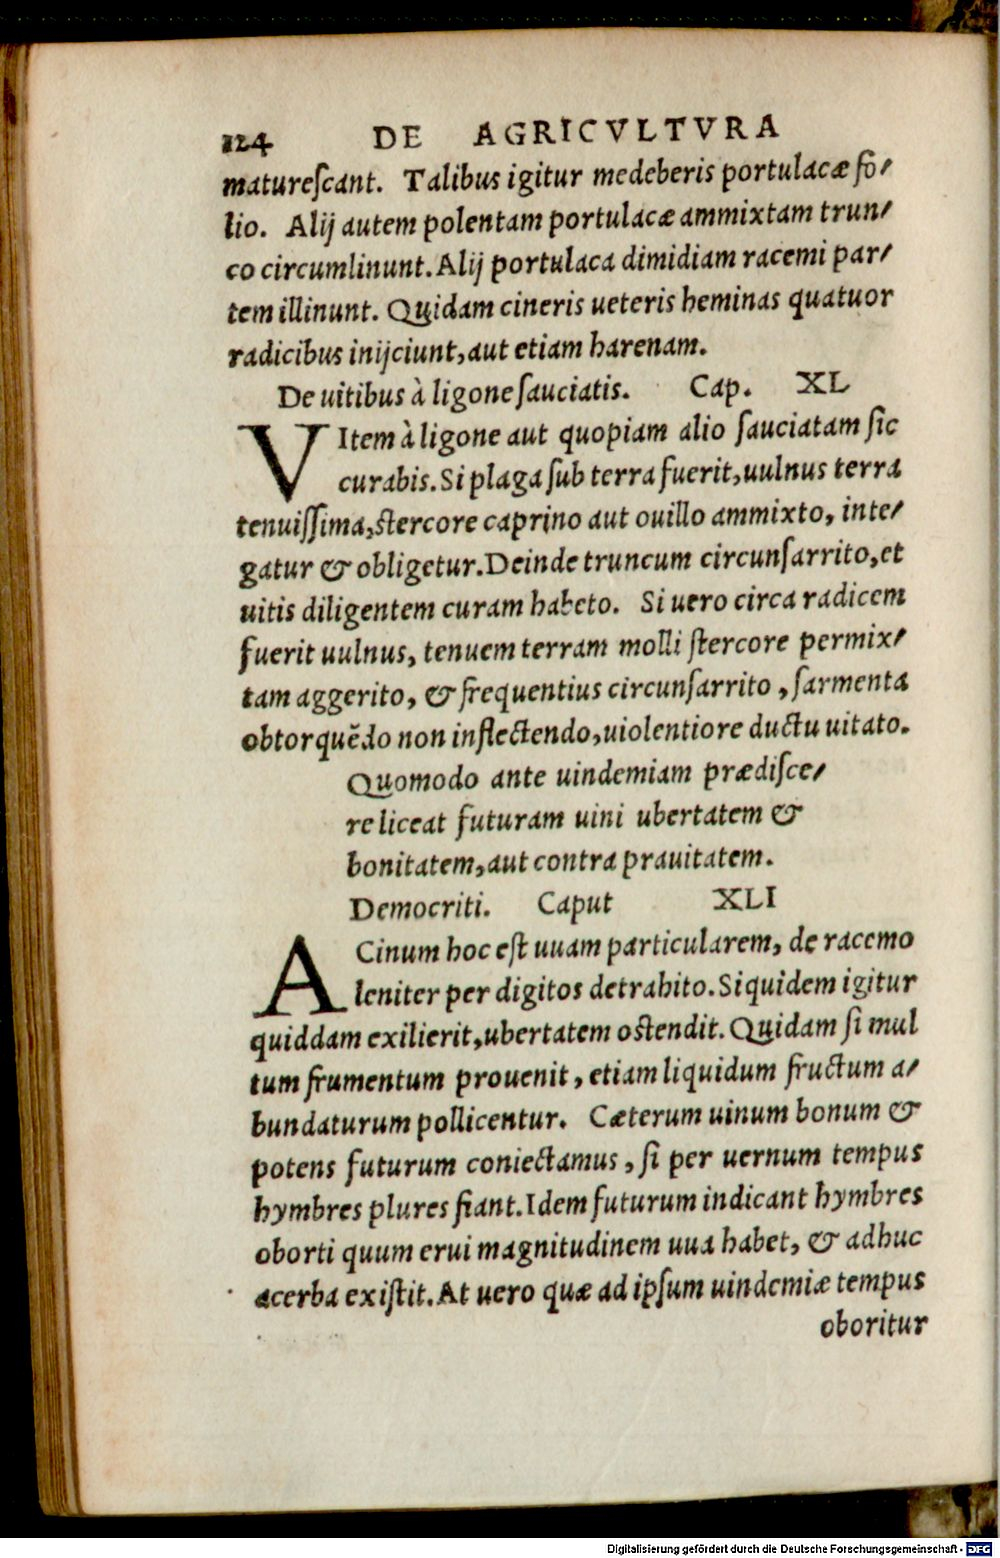 124 DE AGRICVLTVRA
matureſcant. Talibus igitur medeberis portulacæ fo/
lio. Alij autem polentam portulacæ ammixtam trun/
co circumlinunt. Alij portulaca dimidiam racemi par/
tem illinunt. Quidam cineris ueteris heminas quatuor
radicibus inijciunt, aut etiam harenam.
De uitibus à ligone ſauciatis. Cap. XL
VItem à ligone aut quopiam alio ſauciatam ſic
curabis. Si plaga ſub terra fuerit, uulnus terra
tenuiſſima, ſtercore caprino aut ouillo ammixto, inte/
gatur & obligetur. Deinde truncum circunſarrito, et
uitis diligentem curam habeto. Si uero circa radicem
fuerit uulnus, tenuem terram molli ſtercore permix/
tam aggerito, & frequentius circunſarrito, ſarmenta
obtorquẽdo non inflectendo, uiolentiore ductu uitato.
Quomodo ante uindemiam prædiſce/
re liceat futuram uini ubertatem &
bonitatem, aut contra prauitatem.
Democriti. Caput XLI
ACinum hoc eſt uuam particularem, de racemo
leniter per digitos detrahito. Siquidem igitur
quiddam exilierit, ubertatem oſtendit. Quidam ſi mul
tum frumentum prouenit, etiam liquidum fructum a/
bundaturum pollicentur. Cæterum uinum bonum &
potens futurum coniectamus, ſi per uernum tempus
hymbres plures fiant. Idem futurum indicant hymbres
oborti quum erui magnitudinem uua habet, & adhuc
acerba exiſtit. At uero quæ ad ipſum uindemiæ tempus
oboritur
Digitalisierung gefördert durch die Deutsche Forschungsgemeinschaft - DFG